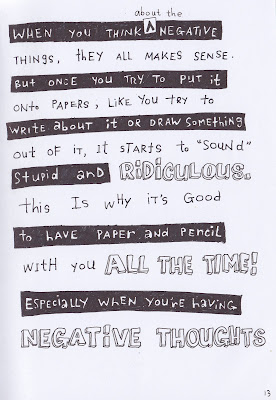 about the
WHEN YOU THINK ^ NEGATIVE
THINGS, they ALL MAKES SENSE.
BUT ONCE YOU TRY TO PUT it
ONto PAPERS, LIKE YOU tRY to
WRITE ABOUT it OR DRAW SOMETHING
OUT OF IT, It StARtS to "SOUND"
StUPID AND RiDiCULOUS.
tHIS IS WHY IT'S GOOD
to HAVE PAPER AND PENCIL
WITH YOU ALL THE TiME!
ESPECIALLY WHEN YOU'RE HAVING
NEGATiVE THOUGHTS
13